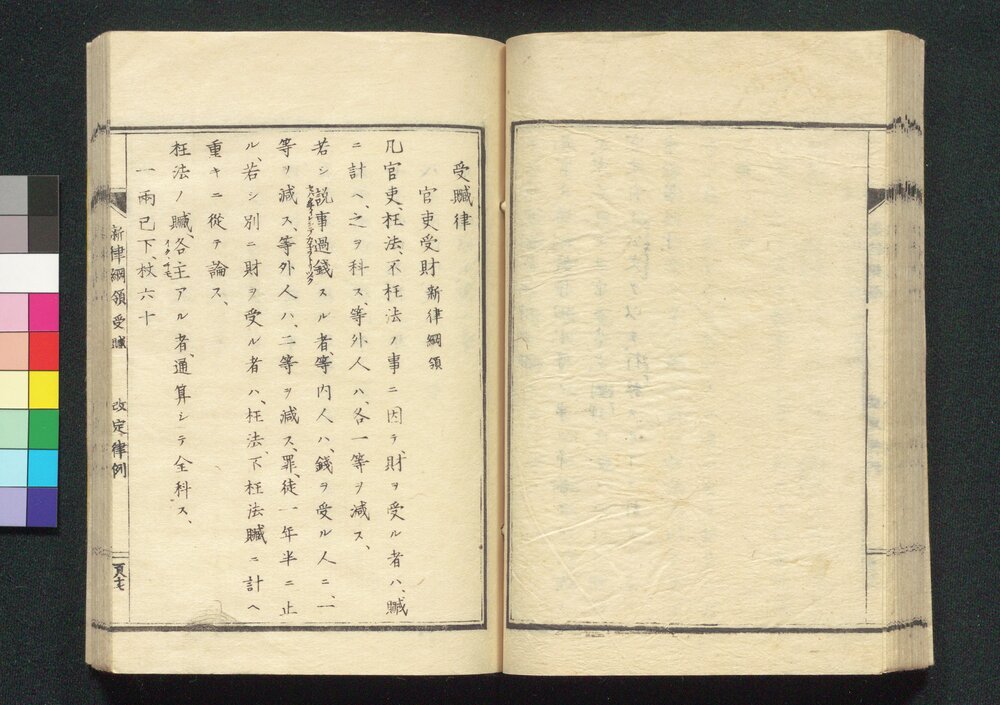 受贓律
官吏受財 新律綱領
凡官吏、枉法、不枉法ノ事ニ因テ、財ヲ受ル者ハ、贓
ニ計ヘ、之ヲ科ス、等外人ハ、各一等ヲ減ス、
若シ説事過錢スル者、等内人ハ、錢ヲ受ル人ニ、一
等ヲ減ス、等外人ハ、二等ヲ減ス、罪、徒一年半ニ止
ル、若シ別ニ財ヲ受ル者ハ、枉法、不枉法贓ニ計ヘ
重キニ從テ論ス、
枉法ノ贓、各主アル者、通算シテ全科ス、
一兩已下、杖六十
新律綱領 受贓 改定律例